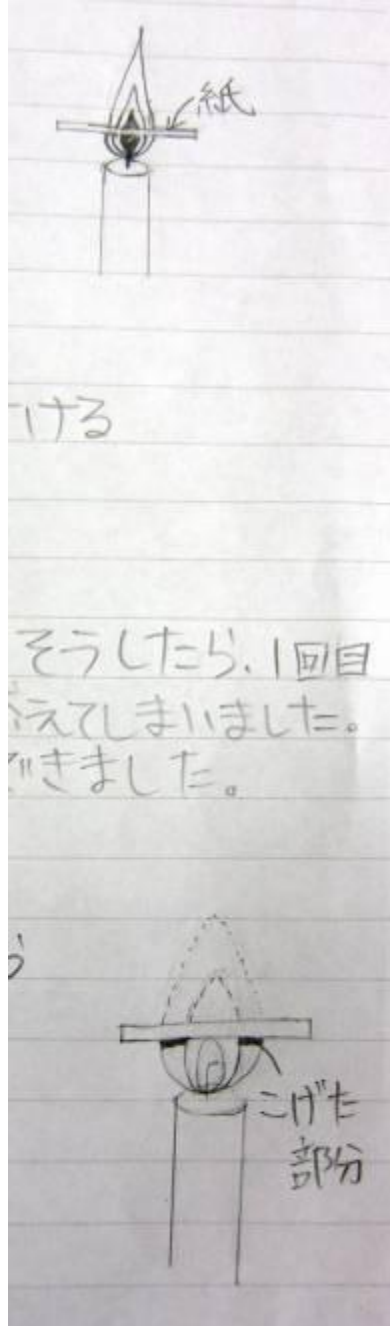 紙
ける
そうしたら、1回目
えてしまいました。
できました。
こげた
部分